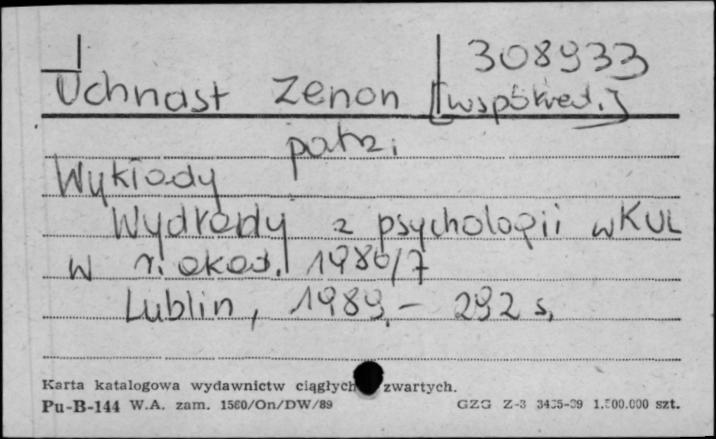 308933
Uchnast Zenon [współred.]
patrz.
Wykłady
Wykłady z psychologii w KUL
w r. akad. 1986/7
Lublin, 1989. - 292 s.
Karta katalogowa wydawnictw ciągłych zwartych.
Pu-B-144 W.A. zam. 1560/On/DW/89 GZG Z-3 3435-89 1.500.000 szt.